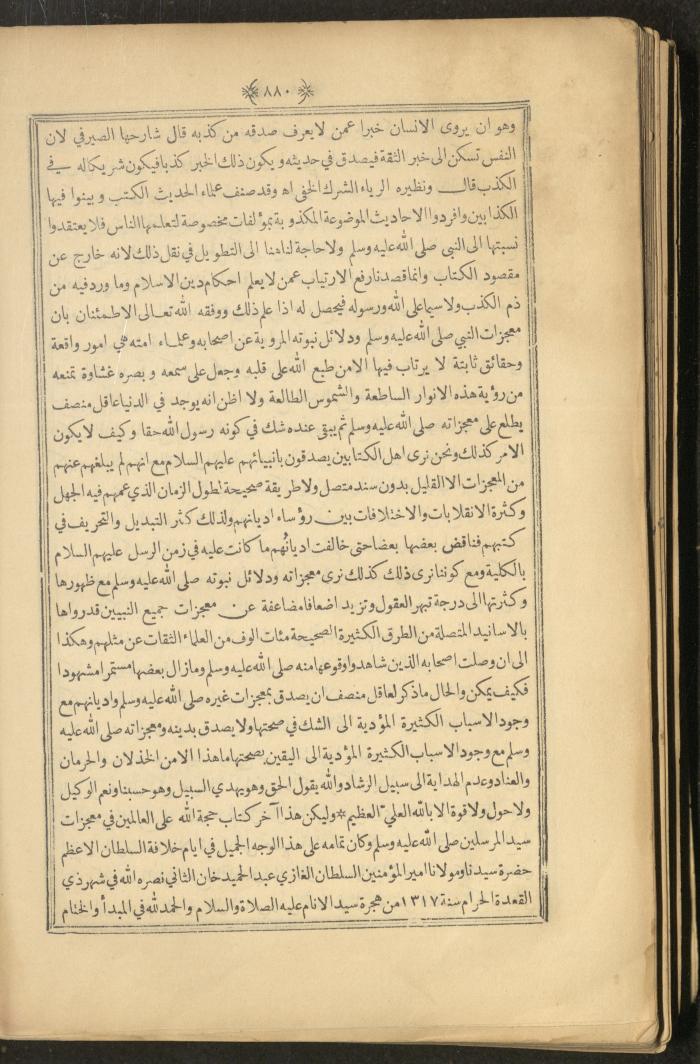 ٨٨٠
وهو ان يروى الانسان خبرا عمن لايعرف صدقه من كذبه قال شارحها الصيرفي لان
النفس تسكن الى خبر الثقة فيصدق في حديثه ويكون ذلك الخبر كذبا فيكون شريكاله في
الكذب قال ونظيره الرياء الشرك الخفى اه وقد صنف علماء الحديث الكتب وبينوا فيها
الكذابين وافردوا الاحاديث الموضوعة المكذوبة بمؤلفات مخصوصة لتعلمها الناس فلايعتقدوا
نسبتها الى النبي صلى الله عليه وسلم ولاحاجة لنا هنا الى التطويل في نقل ذلك لانه خارج عن
مقصود الكتاب وانما قصدنا رفع الارتياب عمن لايعلم احكام دين الاسلام وما ورد فيه من
ذم الكذب ولاسيما على الله ورسوله فيحصل له اذا علم ذلك ووفقه الله تعالى الاطمئنان بان
معجزات النبي صلى الله عليه وسلم ودلائل نبوته المروية عن اصحابه وعلماء امته هي امور واقعة
وحقائق ثابتة لا يرتاب فيها الا من طبع الله على قلبه وجعل على سمعه وبصره غشاوة تمنعه
من رؤية هذه الانوار الساطعة والشموس الطالعة ولا اظن انه يوجد في الدنيا عاقل منصف
يطلع على معجزاته صلى الله عليه وسلم ثم يبقى عنده شك في كونه رسول الله حقا وكيف لايكون
الامر كذلك ونحن نرى اهل الكتابين يصدقون بانبيائهم عليهم السلام مع انهم لم يبلغهم عنهم
من المعجزات الا القليل بدون سند متصل ولاطريقة صحيحة لطول الزمان الذي عمهم فيه الجهل
وكثرة الانقلابات والاختلافات بين رؤساء اديانهم ولذلك كثر التبديل والتحريف في
كتبهم فناقض بعضها بعضا حتى خالفت اديانُهم ما كانت عليه في زمن الرسل عليهم السلام
بالكلية ومع كوننا نرى ذلك كذلك نرى معجزاته ودلائل نبوته صلى الله عليه وسلم مع ظهورها
وكثرتها الى درجة تبهر العقول وتزيد اضعافا مضاعفة عن معجزات جميع النبيين قد رواها
بالاسانيد المتصلة من الطرق الكثيرة الصحيحة مئات الوف من العلماء الثقات عن مثلهم وهكذا
الى ان وصلت اصحابه الذين شاهدوا وقوعها منه صلى الله عليه وسلم ومازال بعضها مستمرا مشهودا
فكيف يمكن والحال ماذكر لعاقل منصف ان يصدق بمعجزات غيره صلى الله عليه وسلم واديانهم مع
وجود الاسباب الكثيرة المؤدية الى الشك في صحتها ولايصدق بدينه ومعجزاته صلى الله عليه
وسلم مع وجود الاسباب الكثيرة المؤدية الى اليقين بصحتها ماهذا الا من الخذلان والحرمان
والعناد وعدم الهداية الى سبيل الرشاد والله يقول الحق وهو يهدي السبيل وهو حسبنا ونعم الوكيل
ولا حول ولا قوة الا بالله العلي العظيم * وليكن هذا آخر كتاب حجة الله على العالمين في معجزات
سيد المرسلين صلى الله عليه وسلم وكان تمامه على هذا الوجه الجميل في ايام خلافة السلطان الاعظم
حضرة سيدنا ومولانا امير المؤمنين السلطان الغازي عبد الحميد خان الثاني نصره الله في شهر ذي
القعدة الحرام سنة ١٣١٧ من هجرة سيد الانام عليه الصلاة والسلام والحمد لله في المبدأ والختام